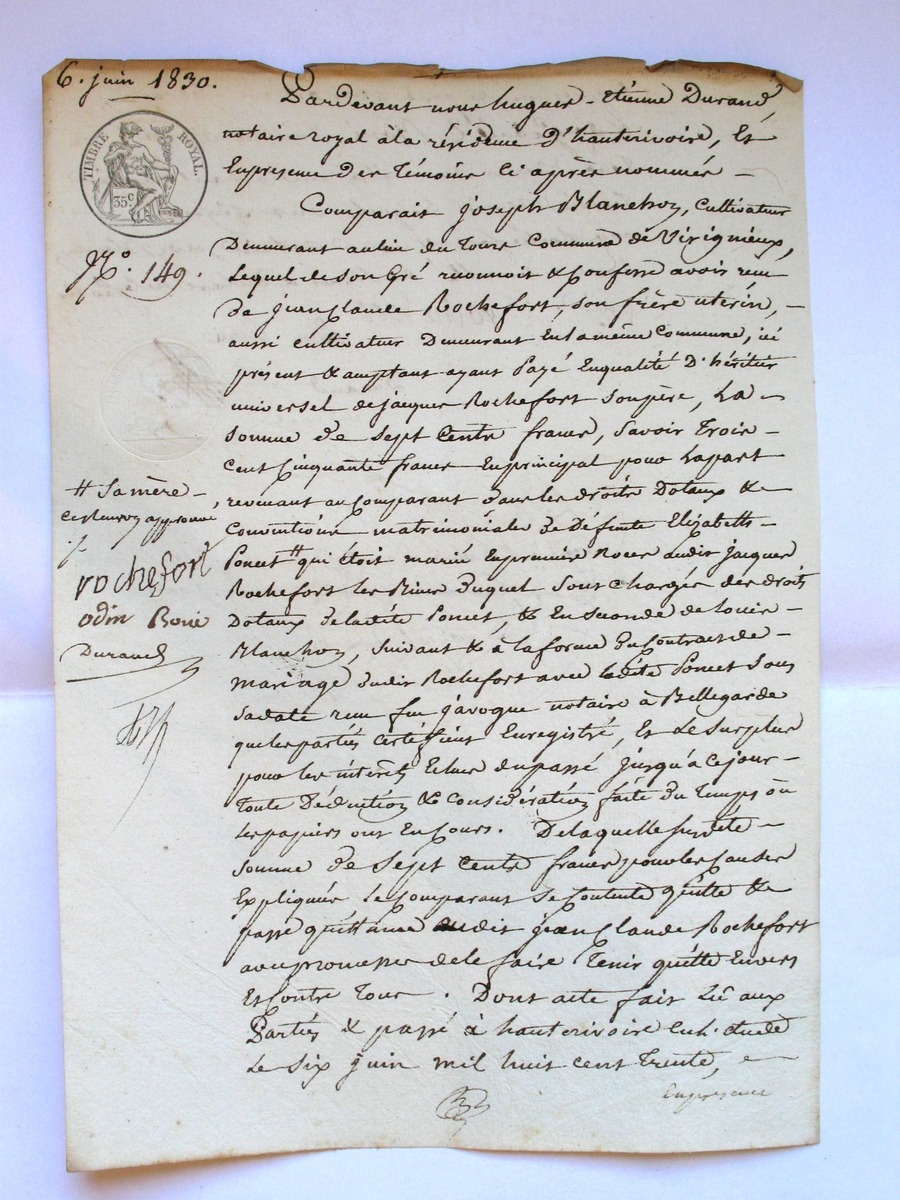 6. juin 1830.
TIMBRE ROYAL.
35.c
N.o 149.
Pardevant nous hugues - etienne Durand,
notaire royal à la résidence d'hauterivoire, Et
En presence des Témoins ci après nommés -
Comparait joseph Blanchon, cultivateur
Demeurant au lieu du Tours Commune de Virigneux,
Lequel de son Gré reconnoit & confesse avoir reçu
de jean Claude Rochefort, son frère uterin, -
aussi cultivateur Demeurant En la même Commune, ici
présent & acceptant ayant Payé En qualité d'héritier
universel de jacques Rochefort son père, La -
somme de sept Cents francs, Savoir Trois -
cent Cinquante francs En principal pour La part
revenant au Comparant dans les droits Dotaux &
Conventions matrimoniales de Défunte Elizabeth -
Poncet # qui étoit mariée En première Noces audit jacques
Rochefort Les Biens duquel sont chargés des droits
Dotaux de la dite Poncet, & En seconde de Louis -
Blanchon, suivant & à la forme du Contract de -
mariage dudit Rochefort avec la dite Poncet sous
sa date reçu feu javogue notaire à Bellegarde
que les parties certifient Enregistré, Et Le surplus
pour les intérets Echus du passé jusqu'à ce jour -
Toute Déduction & considération faite du Temps où
Les papiers ont En Cours. De laquelle susdite -
somme de Sept cents francs pour les Causes
Expliquées Le Comparant se Contente quitte &
passe quittance audit jean Claude Rochefort
avec promesses de le faire Tenir quitte Envers
Et Contre Tous. Dont acte fait Lu aux
Parties & passé à hauterivoire En L'étude
Le six juin mil huit cent Trente, -
En presence
# Sa mère -
ce renvoy approuvé
rochefort
odin Bonie
Durand